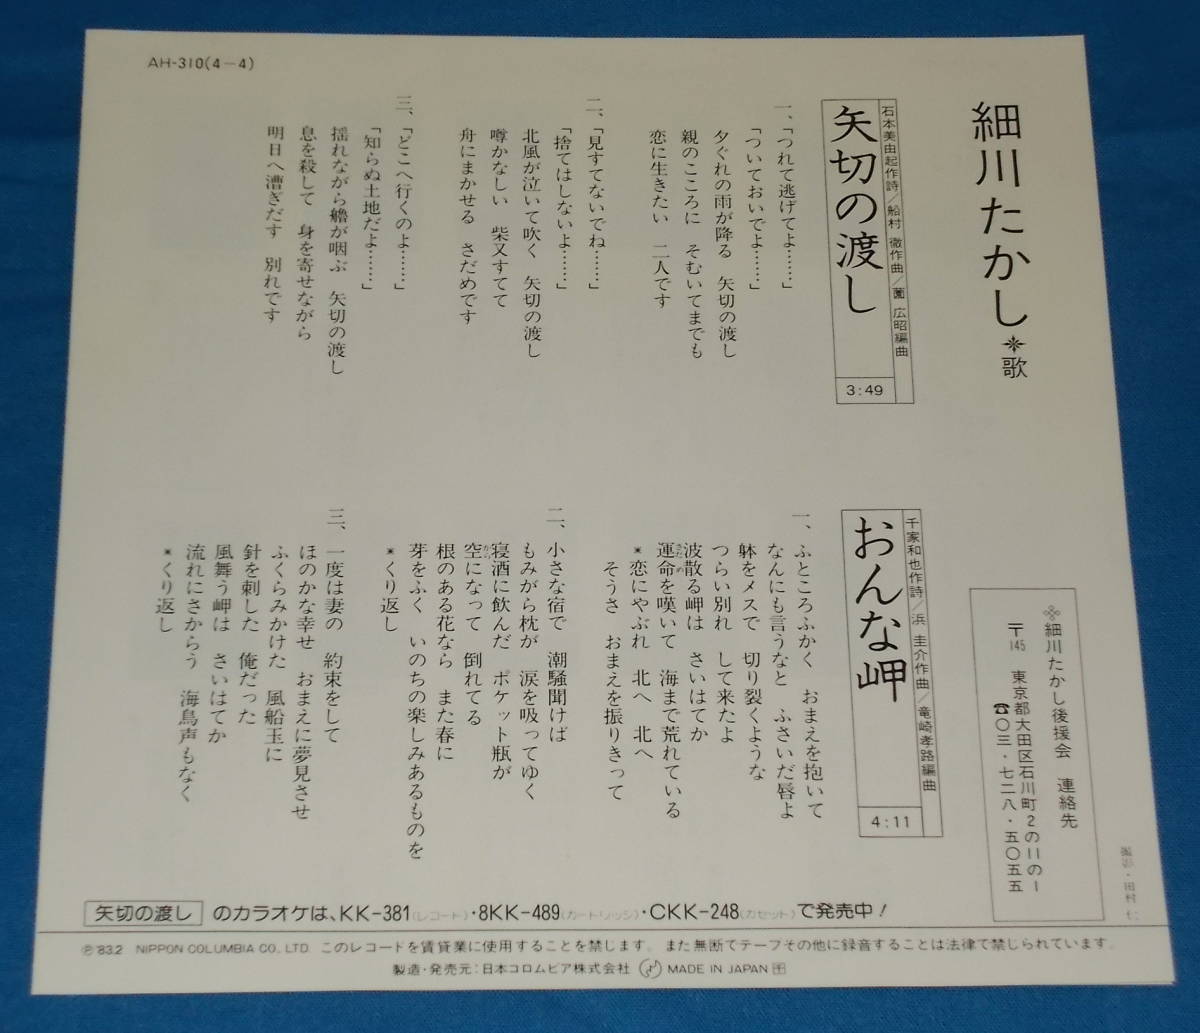 AH-310(4-4)
細川たかし＊歌
石本美由起作詩／船村 徹作曲／薗 広昭編曲
矢切の渡し
3:49
一、「つれて逃げてよ……」
「ついておいでよ……」
夕ぐれの雨が降る 矢切の渡し
親のこころに そむいてまでも
恋に生きたい 二人です
二、「見すてないでね……」
「捨てはしないよ……」
北風が泣いて吹く 矢切の渡し
噂かなしい 柴又すてて
舟にまかせる さだめです
三、「どこへ行くのよ……」
「知らぬ土地だよ……」
揺れながら艪が咽ぶ 矢切の渡し
息を殺して 身を寄せながら
明日へ漕ぎだす 別れです
千家和也作詩／浜 圭介作曲／竜崎孝路編曲
おんな岬
4:11
一、ふところふかく おまえを抱いて
なんにも言うなと ふさいだ唇よ
躰をメスで 切り裂くような
つらい別れ して来たよ
波散る岬は さいはてか
運命を嘆いて 海まで荒れている
＊恋にやぶれ 北へ 北へ
そうさ おまえを振りきって
二、小さな宿で 潮騒聞けば
もみがら枕が 涙を吸ってゆく
寝酒に飲んだ ポケット瓶が
空になって 倒れてる
根のある花なら また春に
芽をふく いのちの楽しみあるものを
＊くり返し
三、一度は妻の 約束をして
ほのかな幸せ おまえに夢見させ
ふくらみかけた 風船玉に
針を刺した 俺だった
風舞う岬は さいはてか
流れにさからう 海鳥声もなく
＊くり返し
細川たかし後援会 連絡先
〒145 東京都大田区石川町2の11の1
☎〇三・七二八・五〇五五
撮影・田村 仁
矢切の渡し のカラオケは、KK-381(レコード)・8KK-489(カートリッジ)・CKK-248(カセット)で発売中！
Ⓟ'83.2 NIPPON COLUMBIA CO., LTD. このレコードを賃貸業に使用することを禁じます。また無断でテープその他に録音することは法律で禁じられています。
製造・発売元：日本コロムビア株式会社 MADE IN JAPAN